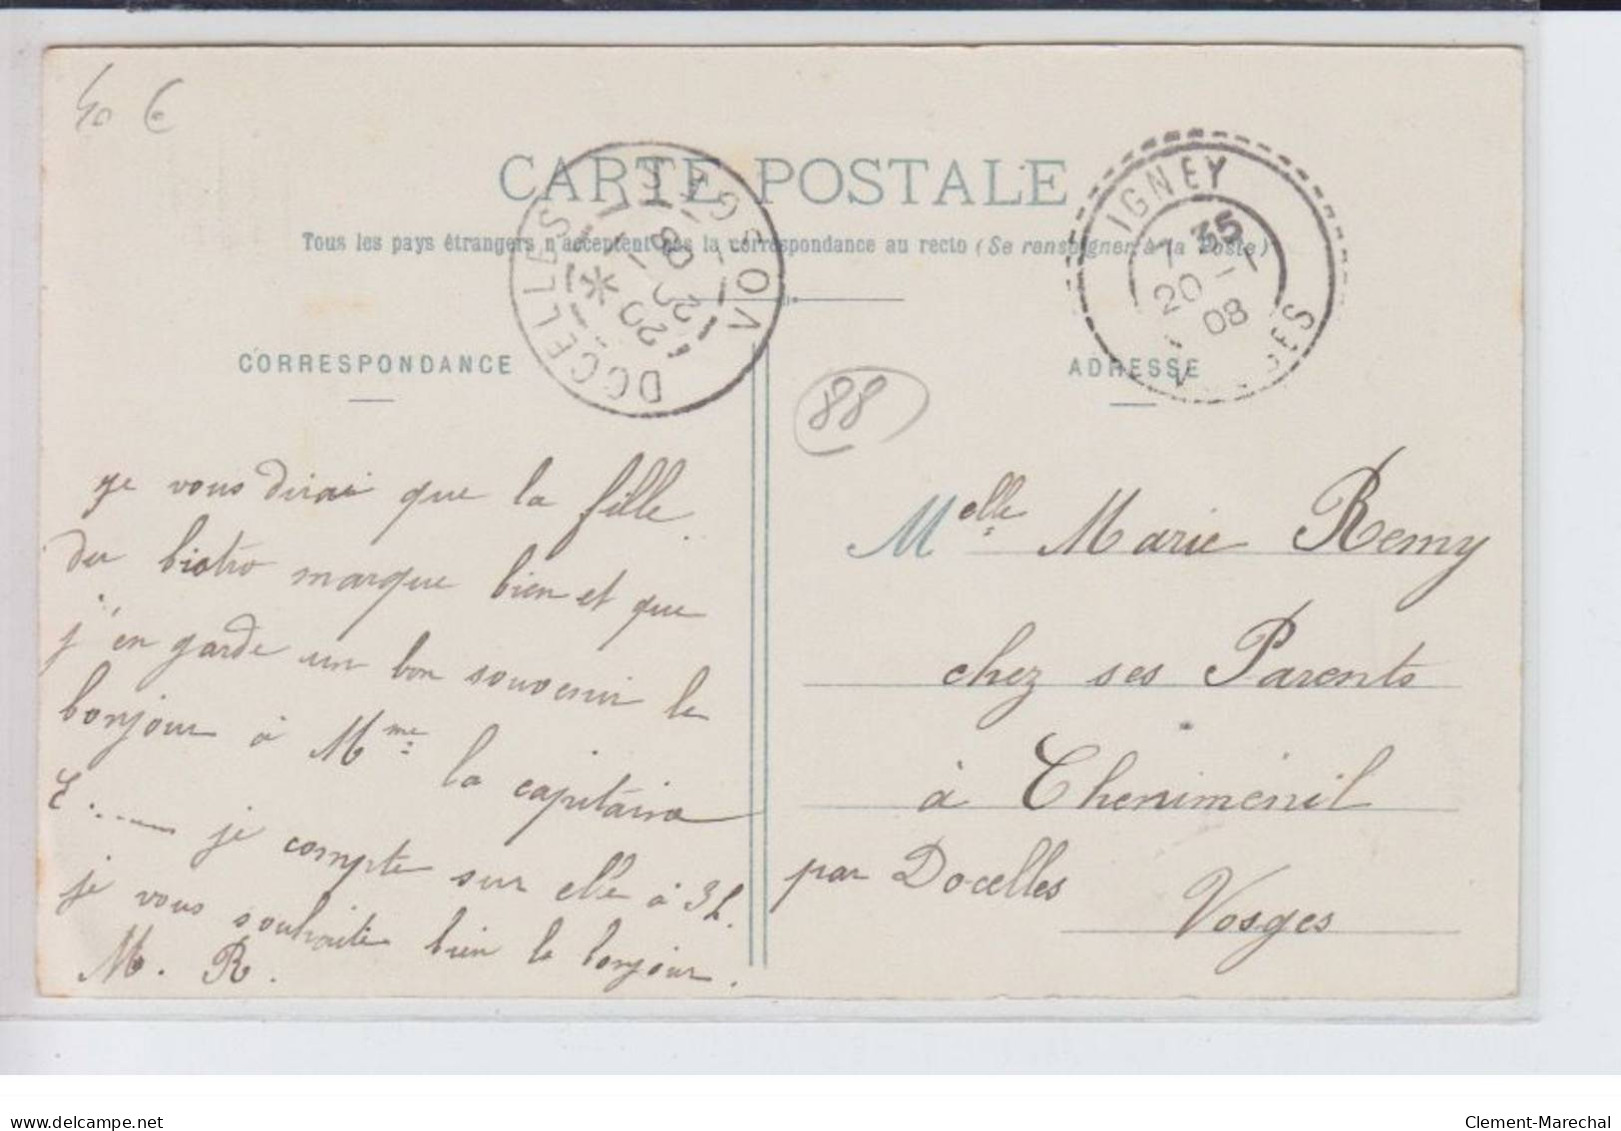 40 €
CARTE POSTALE
Tous les pays étrangers n'acceptent pas la correspondance au recto (Se renseigner à la Poste)
DOCELLES VOSGES
20 - 1
08
IGNEY
7 35
20 - 1
08
VOSGES
CORRESPONDANCE
ADRESSE
88
je vous dirai que la fille
du bistro marque bien et que
j'en garde un bon souvenir le
bonjour à Mme la capitaine
E...... je compte sur elle à 3h.
je vous souhaite bien le bonjour.
M. R.
Melle Marie Remy
chez ses Parents
à Cheniménil
par Docelles
Vosges
www.delcampe.net
Clement-Marechal